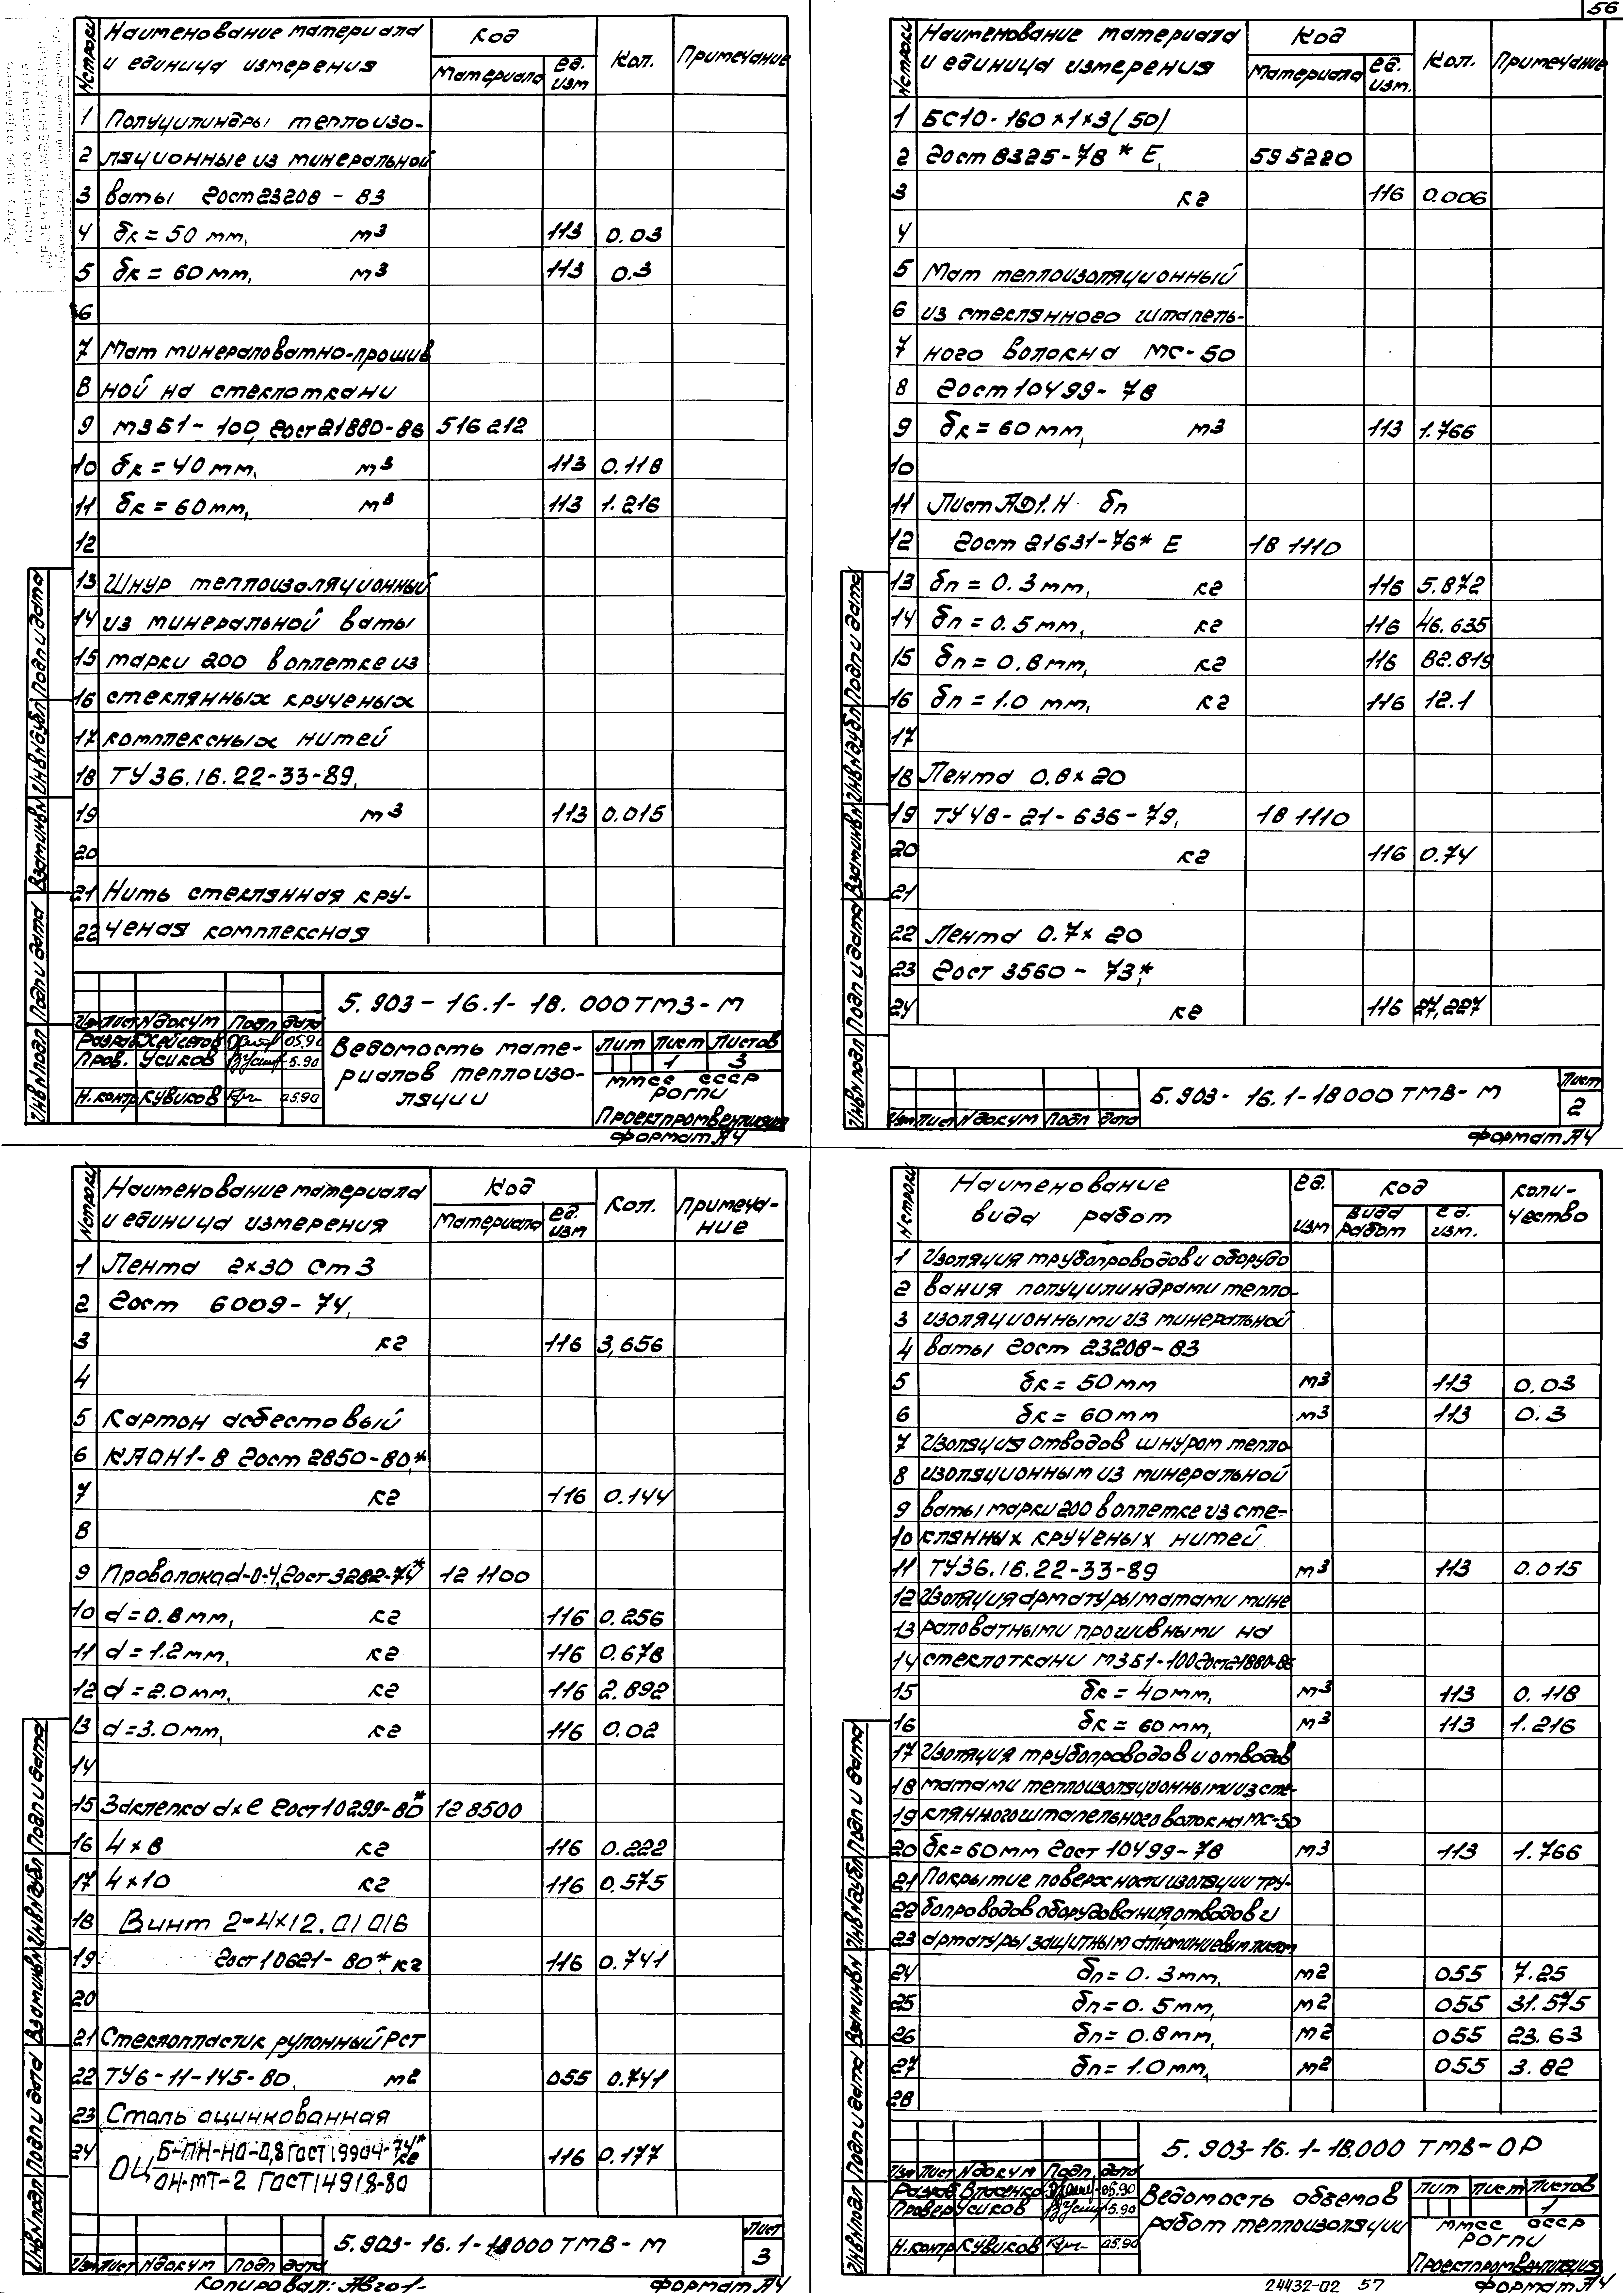 56
№строки Наименование материала и единица измерения Код Материала ед. изм Кол. Примечание
1 Полуцилиндры теплоизо-
2 ляционные из минеральной
3 ваты Гост 23208-83
4 δк = 50 мм, м3 113 0.03
5 δк = 60 мм, м3 113 0.3
6
7 Мат минераловатно-прошив
8 ной на стеклоткани
9 МЗБ1-100, Гост 21880-86 516212
10 δк = 40 мм, м3 113 0.118
11 δк = 60 мм, м3 113 1.216
12
13 Шнур теплоизоляционный
14 из минеральной ваты
15 марки 200 в оплетке из
16 стеклянных крученых
17 комплексных нитей
18 ТУ36.16.22-33-89,
19 м3 113 0.015
20
21 Нить стеклянная кру-
22 ченая комплексная
5.903-16.1-18.000ТМЗ-М
Изм Лист № докум Подп дата
Разраб 05.90
Пров. Усиков 5.90
Н.контр Кувиков 05.90
Ведомость мате-
риалов теплоизо-
ляции
Лит Лист Листов
1 3
ММСС СССР
РОГПИ
Проектпромвентиляция
Формат А4
Инв№подл Подп и дата Взам инв№ Инв№дубл Подп и дата
№строки Наименование материала и единица измерения Код Материала ед. изм. Кол. Примечание
1 БС10-160×1×3(50)
2 Гост 8325-78* Е, 595220
3 кг 116 0.006
4
5 Мат теплоизоляционный
6 из стеклянного штапель-
7 ного волокна МС-50
8 Гост 10499-78
9 δк = 60 мм, м3 113 1.766
10
11 Лист АД1.Н δп
12 Гост 21631-76* Е 18 1110
13 δп = 0.3 мм, кг 116 5.872
14 δп = 0.5 мм, кг 116 46.635
15 δп = 0.8 мм, кг 116 82.819
16 δп = 1.0 мм, кг 116 12.1
17
18 Лента 0.8×20
19 ТУ48-21-636-79, 18 1110
20 кг 116 0.74
21
22 Лента 0.7×20
23 Гост 3560-73,*
24 кг 116 27,227
5.903-16.1-18000ТМВ-М
Лист
2
Изм Лист № докум Подп дата
Формат А4
Инв№подл Подп и дата Взам инв№ Инв№дубл Подп и дата
№строки Наименование материала и единица измерения Код Материала ед. изм Кол. Примеча-ние
1 Лента 2×30 Ст3
2 Гост 6009-74,
3 кг 116 3,656
4
5 Картон асбестовый
6 КАОН1-8 Гост 2850-80,*
7 кг 116 0.144
8
9 Проволока d-0-4, Гост 3282-74* 12 1100
10 d = 0.8 мм, кг 116 0.256
11 d = 1.2 мм, кг 116 0.678
12 d = 2.0 мм, кг 116 2.892
13 d = 3.0 мм, кг 116 0.02
14
15 Заклепка d×ℓ Гост 10299-80* 128500
16 4×8 кг 116 0.222
17 4×10 кг 116 0.575
18 Винт 2-4×12.01 016
19 Гост 10621-80*, кг 116 0.741
20
21 Стеклопластик рулонный РСТ
22 ТУ6-11-145-80, м2 055 0.741
23 Сталь оцинкованная
24 ОЦ Б-ПН-НО-0,8 ГОСТ 19904-74* кг 116 0.177
ОН-МТ-2 ГОСТ 14918-80
5.903-16.1-18000ТМВ-М
Лист
3
Изм Лист № докум Подп дата
Копировал:
Формат А4
Инв№подл Подп и дата Взам инв№ Инв№дубл Подп и дата
№строки Наименование вида работ ед. изм Код вида работ ед. изм. Коли-чество
1 Изоляция трубопроводов и оборудо
2 вания полуцилиндрами тепло-
3 изоляционными из минеральной
4 ваты Гост 23208-83
5 δк = 50 мм м3 113 0.03
6 δк = 60 мм м3 113 0.3
7 Изоляция отводов шнуром тепло-
8 изоляционным из минеральной
9 ваты марки 200 в оплетке из сте-
10 клянных крученых нитей
11 ТУ36.16.22-33-89 м3 113 0.015
12 Изоляция арматуры матами мине
13 раловатными прошивными на
14 стеклоткани МЗБ1-100 Гост 21880-86
15 δк = 40 мм, м3 113 0.118
16 δк = 60 мм, м3 113 1.216
17 Изоляция трубопроводов и отводов
18 матами теплоизоляционными из сте-
19 клянного штапельного волокна МС-50
20 δк = 60 мм Гост 10499-78 м3 113 1.766
21 Покрытие поверхности изоляции тру-
22 бопроводов оборудования, отводов и
23 арматуры защитным алюминиевым листом
24 δп = 0.3 мм, м2 055 7.25
25 δп = 0.5 мм, м2 055 31.575
26 δп = 0.8 мм, м2 055 23.63
27 δп = 1.0 мм, м2 055 3.82
28
5.903-16.1-18.000 ТМВ-ОР
Изм Лист № докум Подп. дата
Разраб Власенко 05.90
Провер Усиков 5.90
Н.контр Кувиков 05.90
Ведомость объемов
работ теплоизоляции
Лит Лист Листов
1
ММСС СССР
РОГПИ
Проектпромвентиляция
Формат А4
Инв№подл Подп и дата Взам инв№ Инв№дубл Подп и дата
24432-02 57